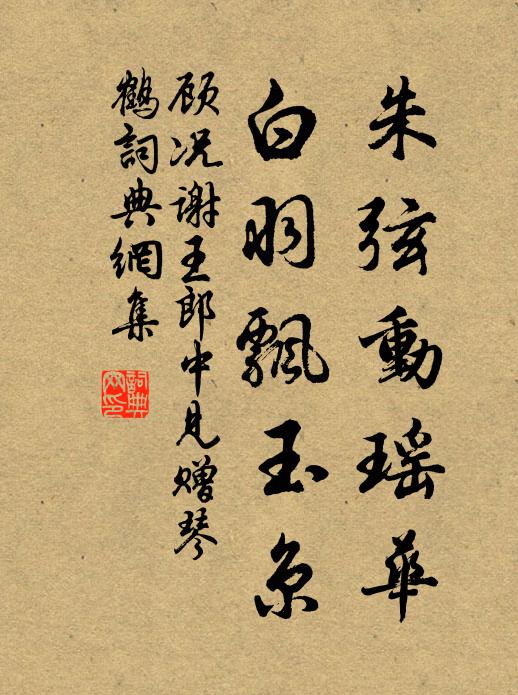 朱弦動瑶華
白羽飄玉京
顾况谢王郎中見赠琴
鶴詞典網集
詞典網印